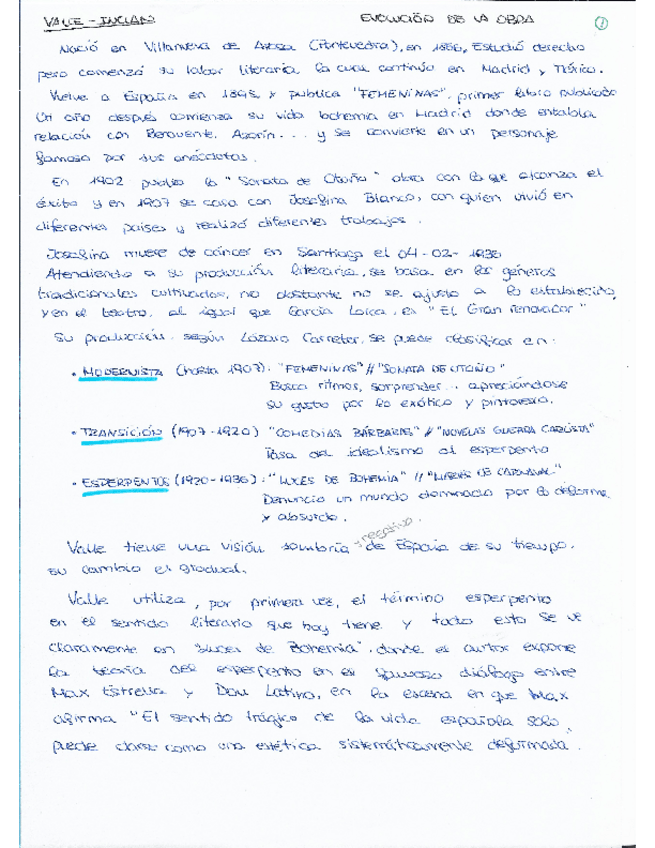 VALLE-INCLÁN EVOLUCIÓN DE LA OBRA 1
Nació en Villanueva de Arosa (Pontevedra), en 1866, Estudió derecho
pero comenzó su labor literaria la cual continúo en Madrid y México.
Vuelve a España en 1895 y publica "FEMENINAS", primer libro publicado
Un año después comienza su vida bohemia en Madrid donde entabla
relación con Benavente, Azorín... y se convierte en un personaje
famoso por sus anécdotas.
En 1902 publica la "Sonata de Otoño" obra con la que alcanza el
éxito y en 1907 se casa con Josefina Blanco, con quien vivió en
diferentes países y realizó diferentes trabajos.
Josefina muere de cáncer en Santiago el 04-02-1936
Atendiendo a su producción literaria, se basa en los géneros
tradicionales cultivados, no obstante no se ajusta a lo establecido,
y en el teatro, al igual que García Lorca, es "El Gran renovador"
Su producción, según Lázaro Carreter, se puede clasificar en:
• MODERNISTA (hasta 1907): "FEMENINAS" // "SONATA DE OTOÑO"
Busca ritmos, sorprender... apreciándose
su gusto por lo exótico y pintoresco.
• TRANSICIÓN (1907-1920) "COMEDIAS BÁRBARAS" // "NOVELAS GUERRA CARLISTA"
Pasa del idealismo al esperpento
• ESPERPENTOS (1920-1936): "LUCES DE BOHEMIA" // "MARTES DE CARNAVAL"
Denuncia un mundo dominado por lo deforme
y absurdo.
Valle tiene una visión sombría y negativa de España de su tiempo,
su cambio es gradual.
Valle utiliza, por primera vez, el término esperpento
en el sentido literario que hoy tiene y todo esto se ve
claramente en "Luces de Bohemia", donde el autor expone
la teoría del esperpento en el famoso diálogo entre
Max Estrella y Don Latino, en la escena en que Max
afirma "El sentido trágico de la vida española solo
puede darse como una estética sistemáticamente deformada".